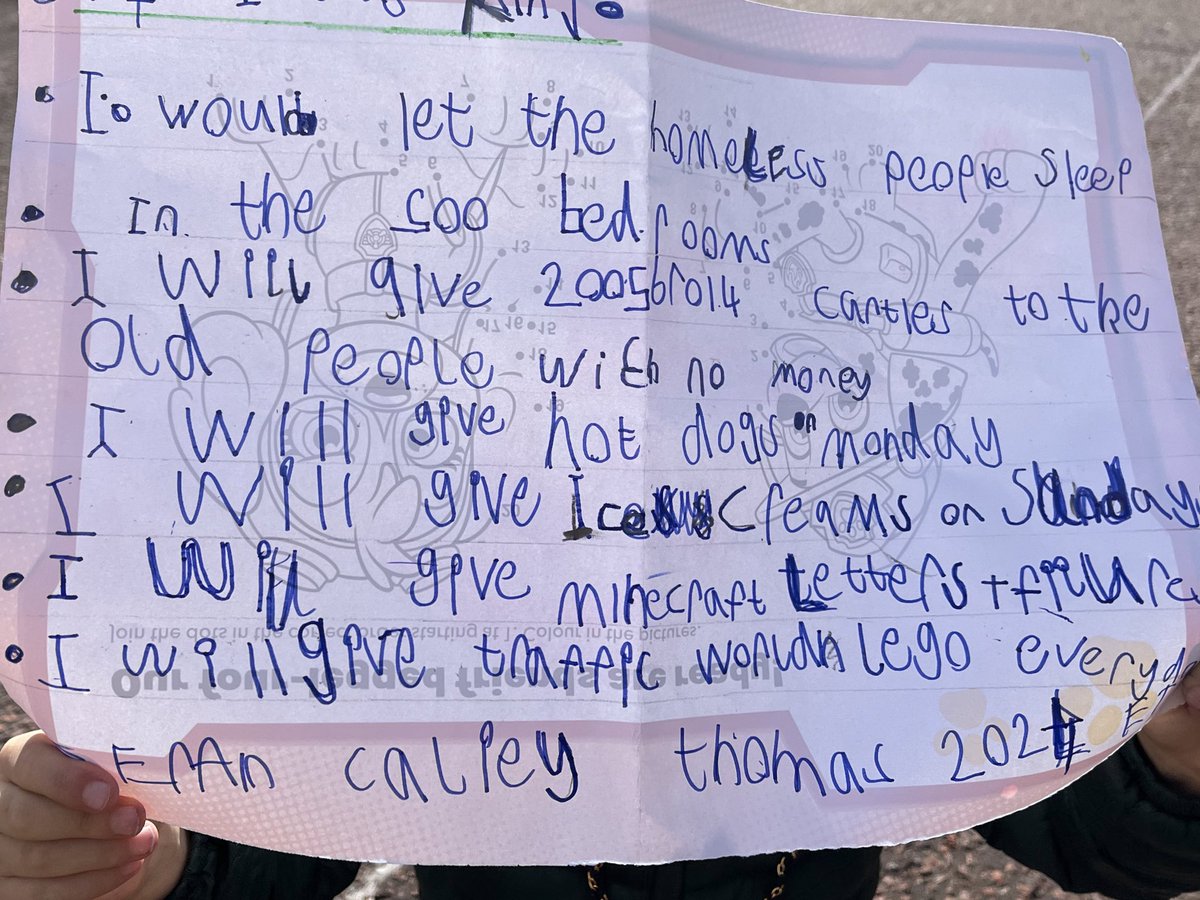 King.
• I. would let the homeless people sleep
In. the 500 bed.rooms
• I will give 200561014 castles to the
Old people with no money
• I will give hot dogs on monday
• I will give Ice creams on Sunday
• I will give minecraft Letters +
• I will give traffic world lego every
calley thomas 2021
Join the dots in the correct order starting at 1. Colour in the pictures.
Our four-legged friends are ready!